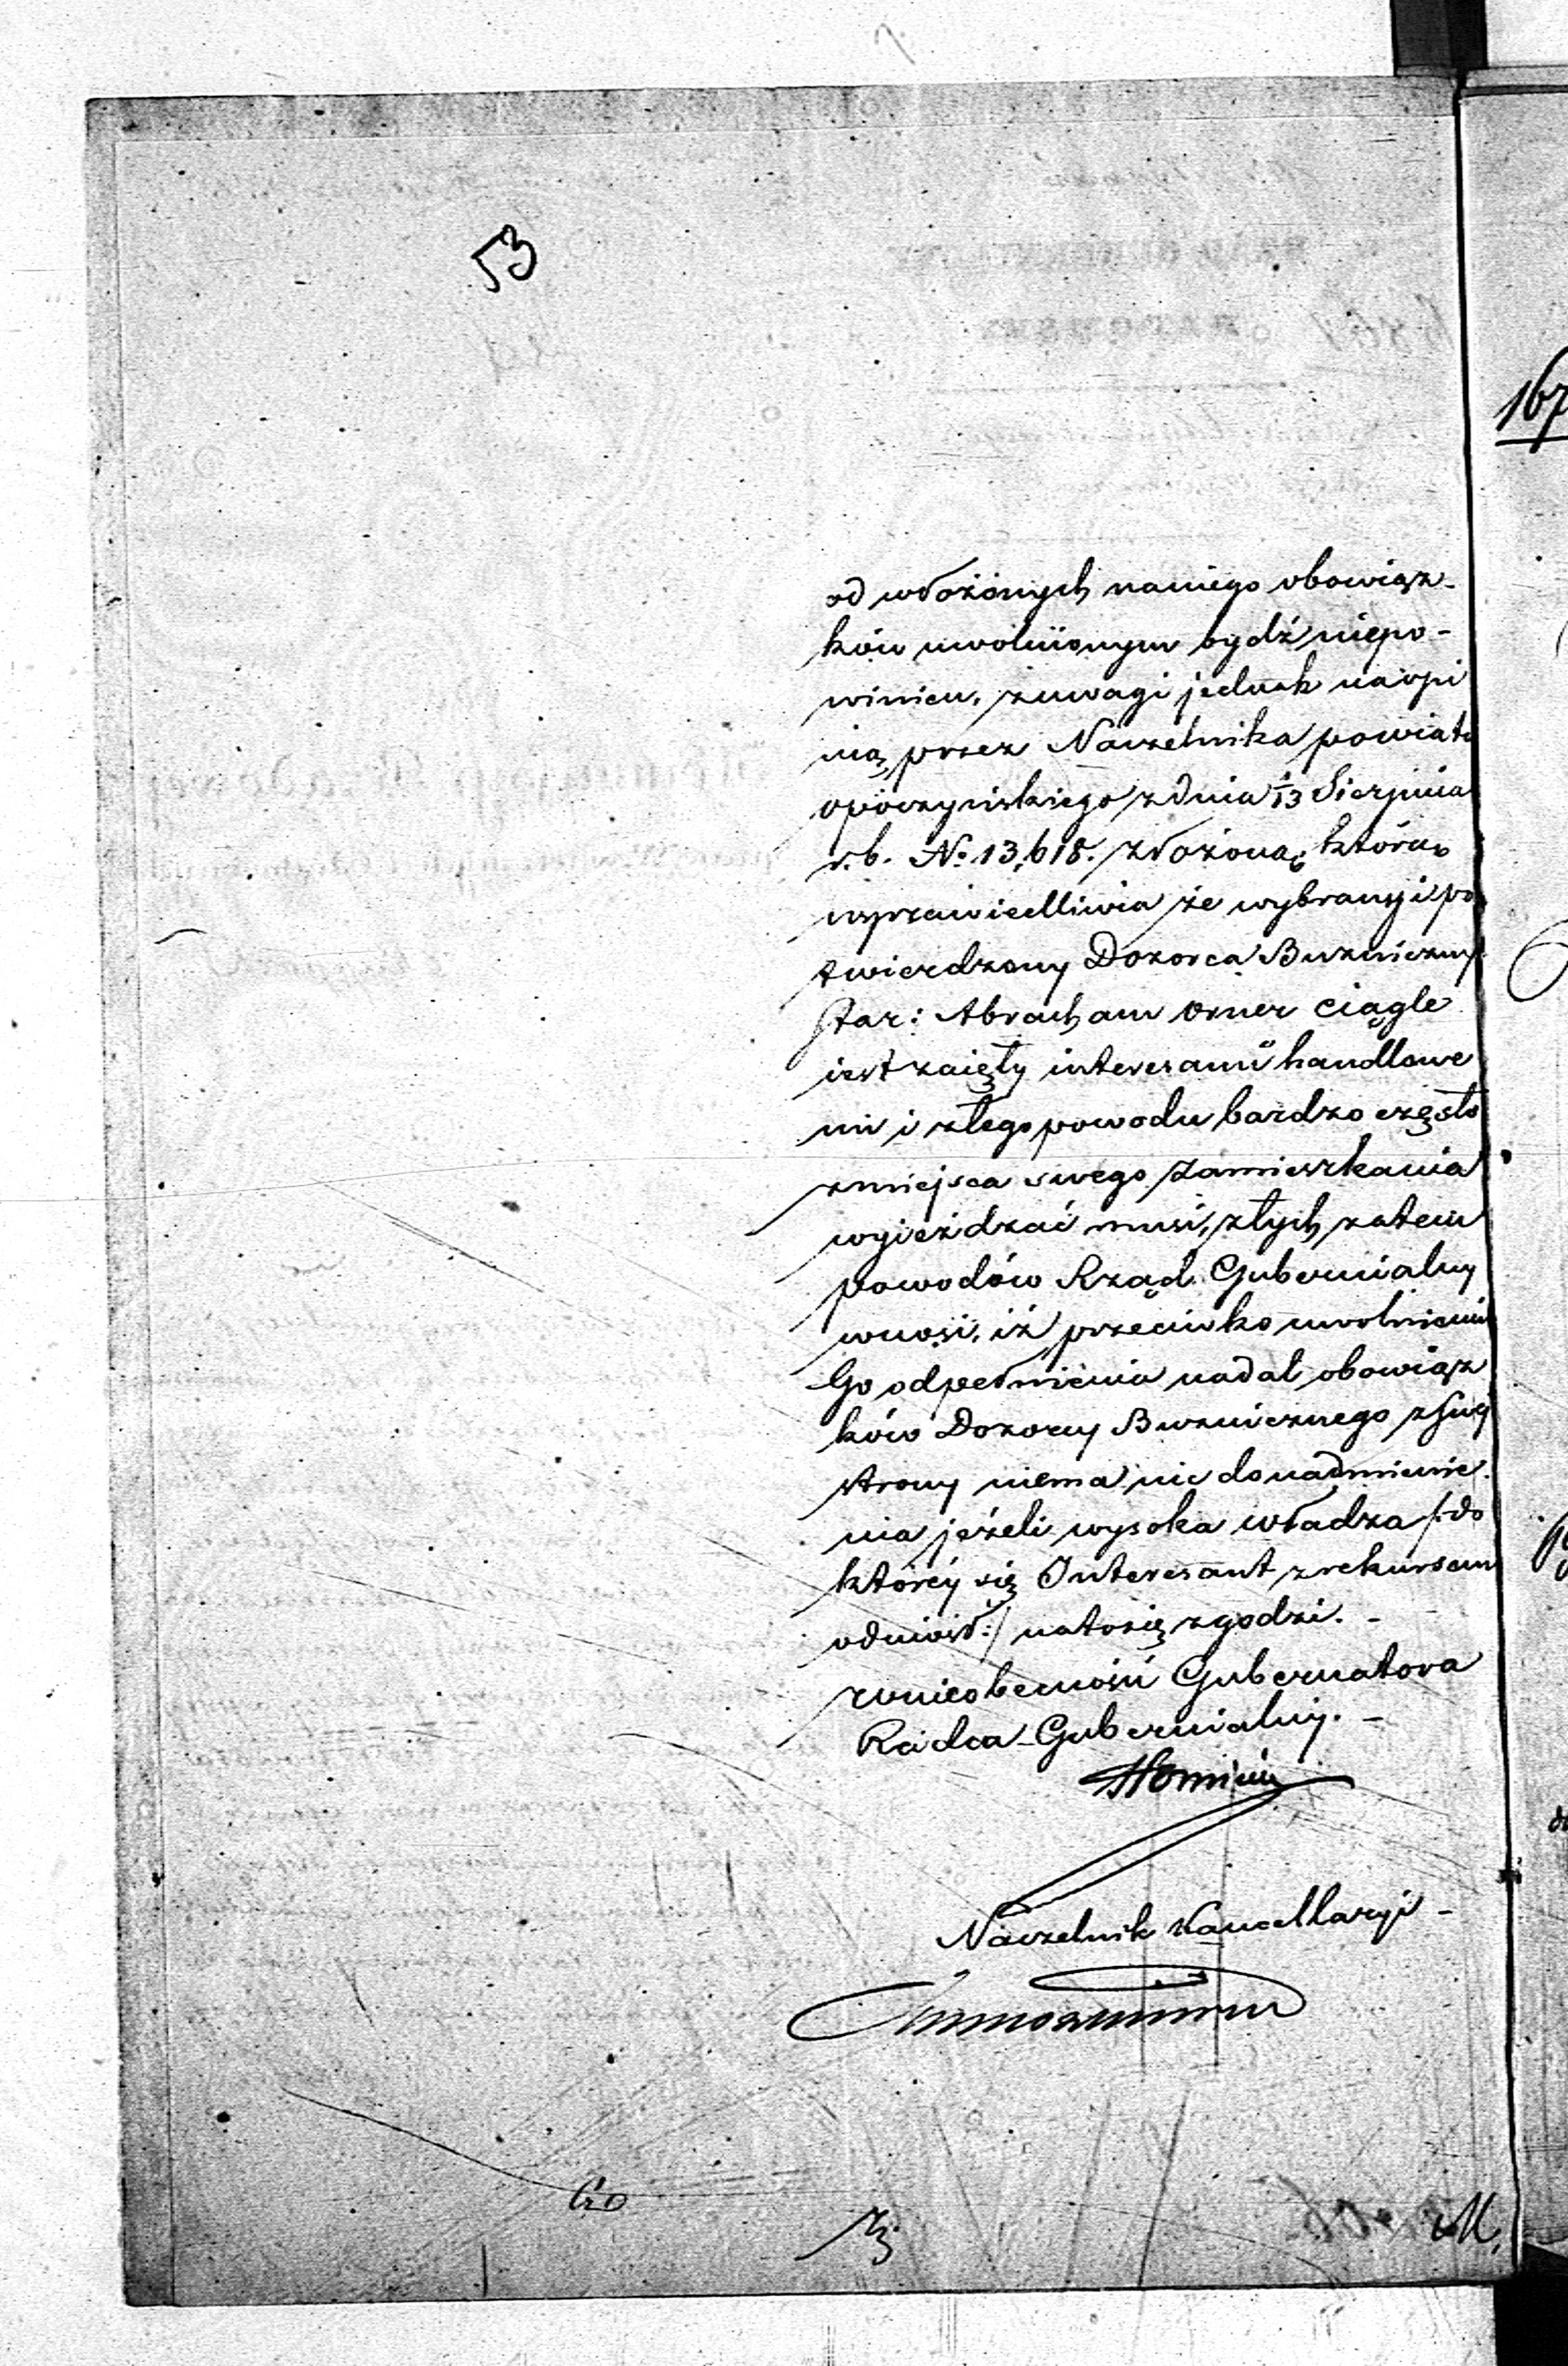 53
od włożonych naniego obowiąz-
ków uwolnionym bydź niepo-
winien, zuwagi jednak naopi
nią przez Naczelnika powiatu
opoczyńskiego zdnia 1/13 Sierpnia
r.b. No 13,618. złożoną, która
usprawiedliwia że wybrany i po
twierdzony Dozorca Bużniczny
Star: Abracham Orner ciągle
iest zaięty interesami handlowe
mi i ztego powodu bardzo często
zmiejsca swego zamieszkania
wyieżdzać musi, ztych zatem
powodów Rząd Gubernialny
wnosi, iż przeciwko uwolnieniu
Go odpełnienia nadal obowiąz
ków Dozorcy Bużnicznego zswej
strony niema nic donadmienie
nia jeżeli wysoka władza /:do
któréy się Interesant zrekursem
odniósł:/ natosię zgodzi. -
wnieobecności Gubernatora
Radca Gubernialny. -
Naczelnik Kancellaryi -
M.